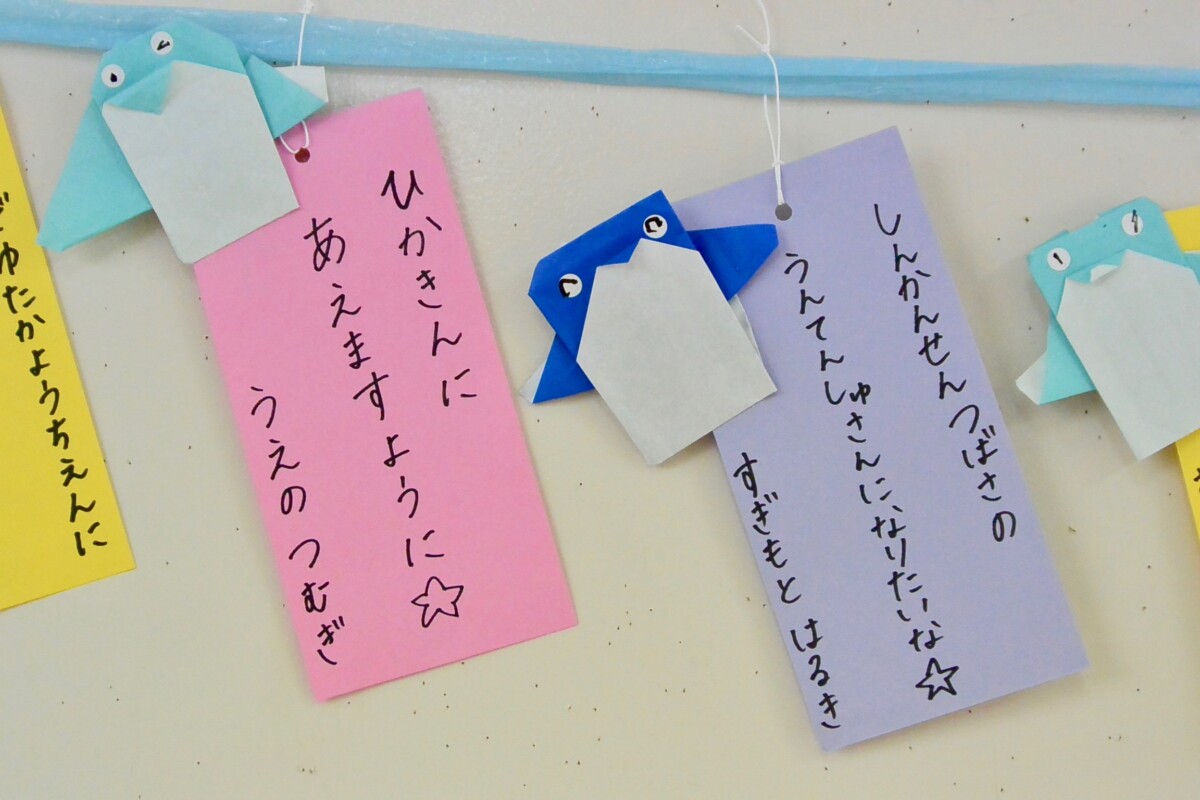 ゆたかようちえんに
ひかきんに
あえますように☆
うえの つむぎ
しんかんせん つばさの
うんてんしゅさんになりたいな☆
すぎもと はるき